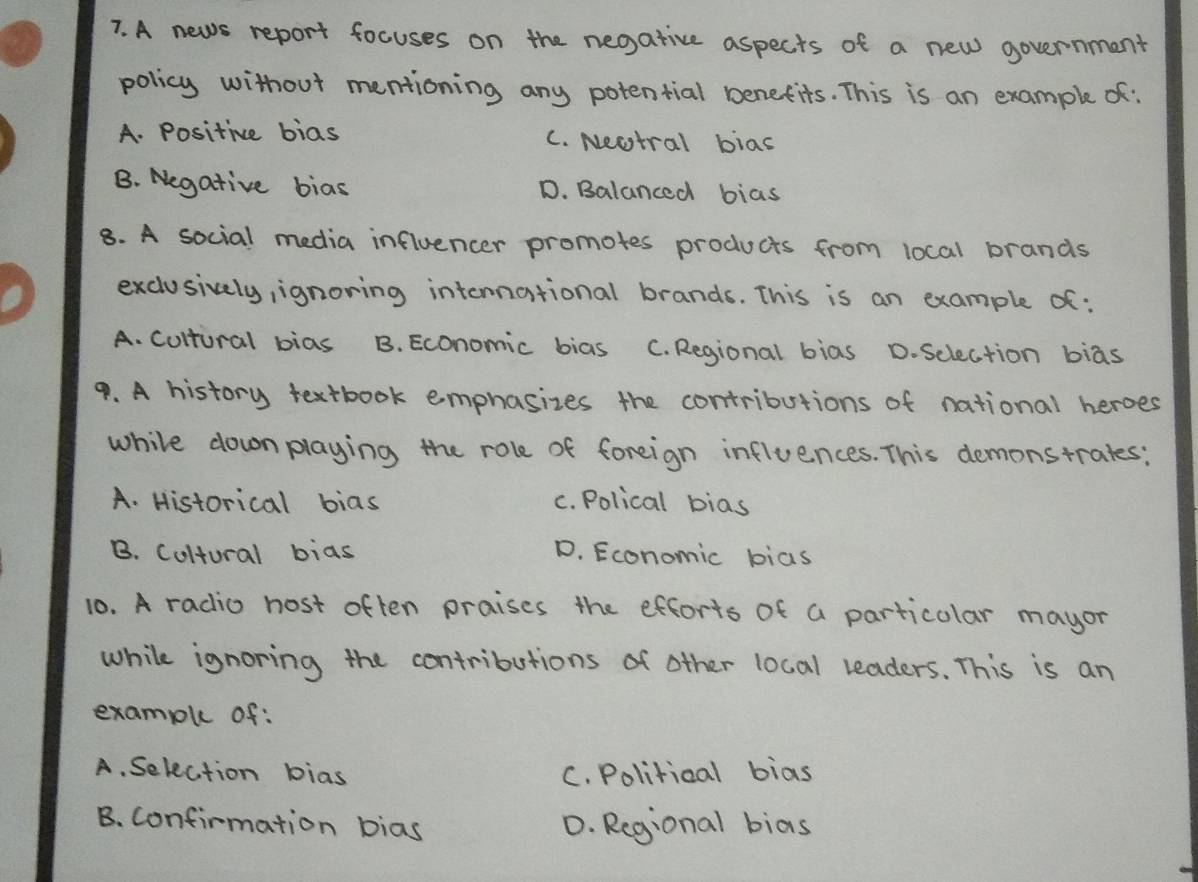 7. A news report focuses on the negative aspects of a new government
policy without mentioning any potential benefits. This is an example of:
A. Positive bias C. Neutral bias
B. Negative bias D. Balanced bias
8. A social media influencer promotes products from local brands
exclusively, ignoring international brands. This is an example of:
A. Cultural bias B. Economic bias C. Regional bias D. Selection bias
9. A history textbook emphasizes the contributions of national heroes
while downplaying the role of foreign influences. This demonstrates:
A. Historical bias C. Polical bias
B. Cultural bias D. Economic bias
10. A radio host often praises the efforts of a particular mayor
while ignoring the contributions of other local leaders. This is an
example of:
A. Selection bias C. Political bias
B. Confirmation bias D. Regional bias